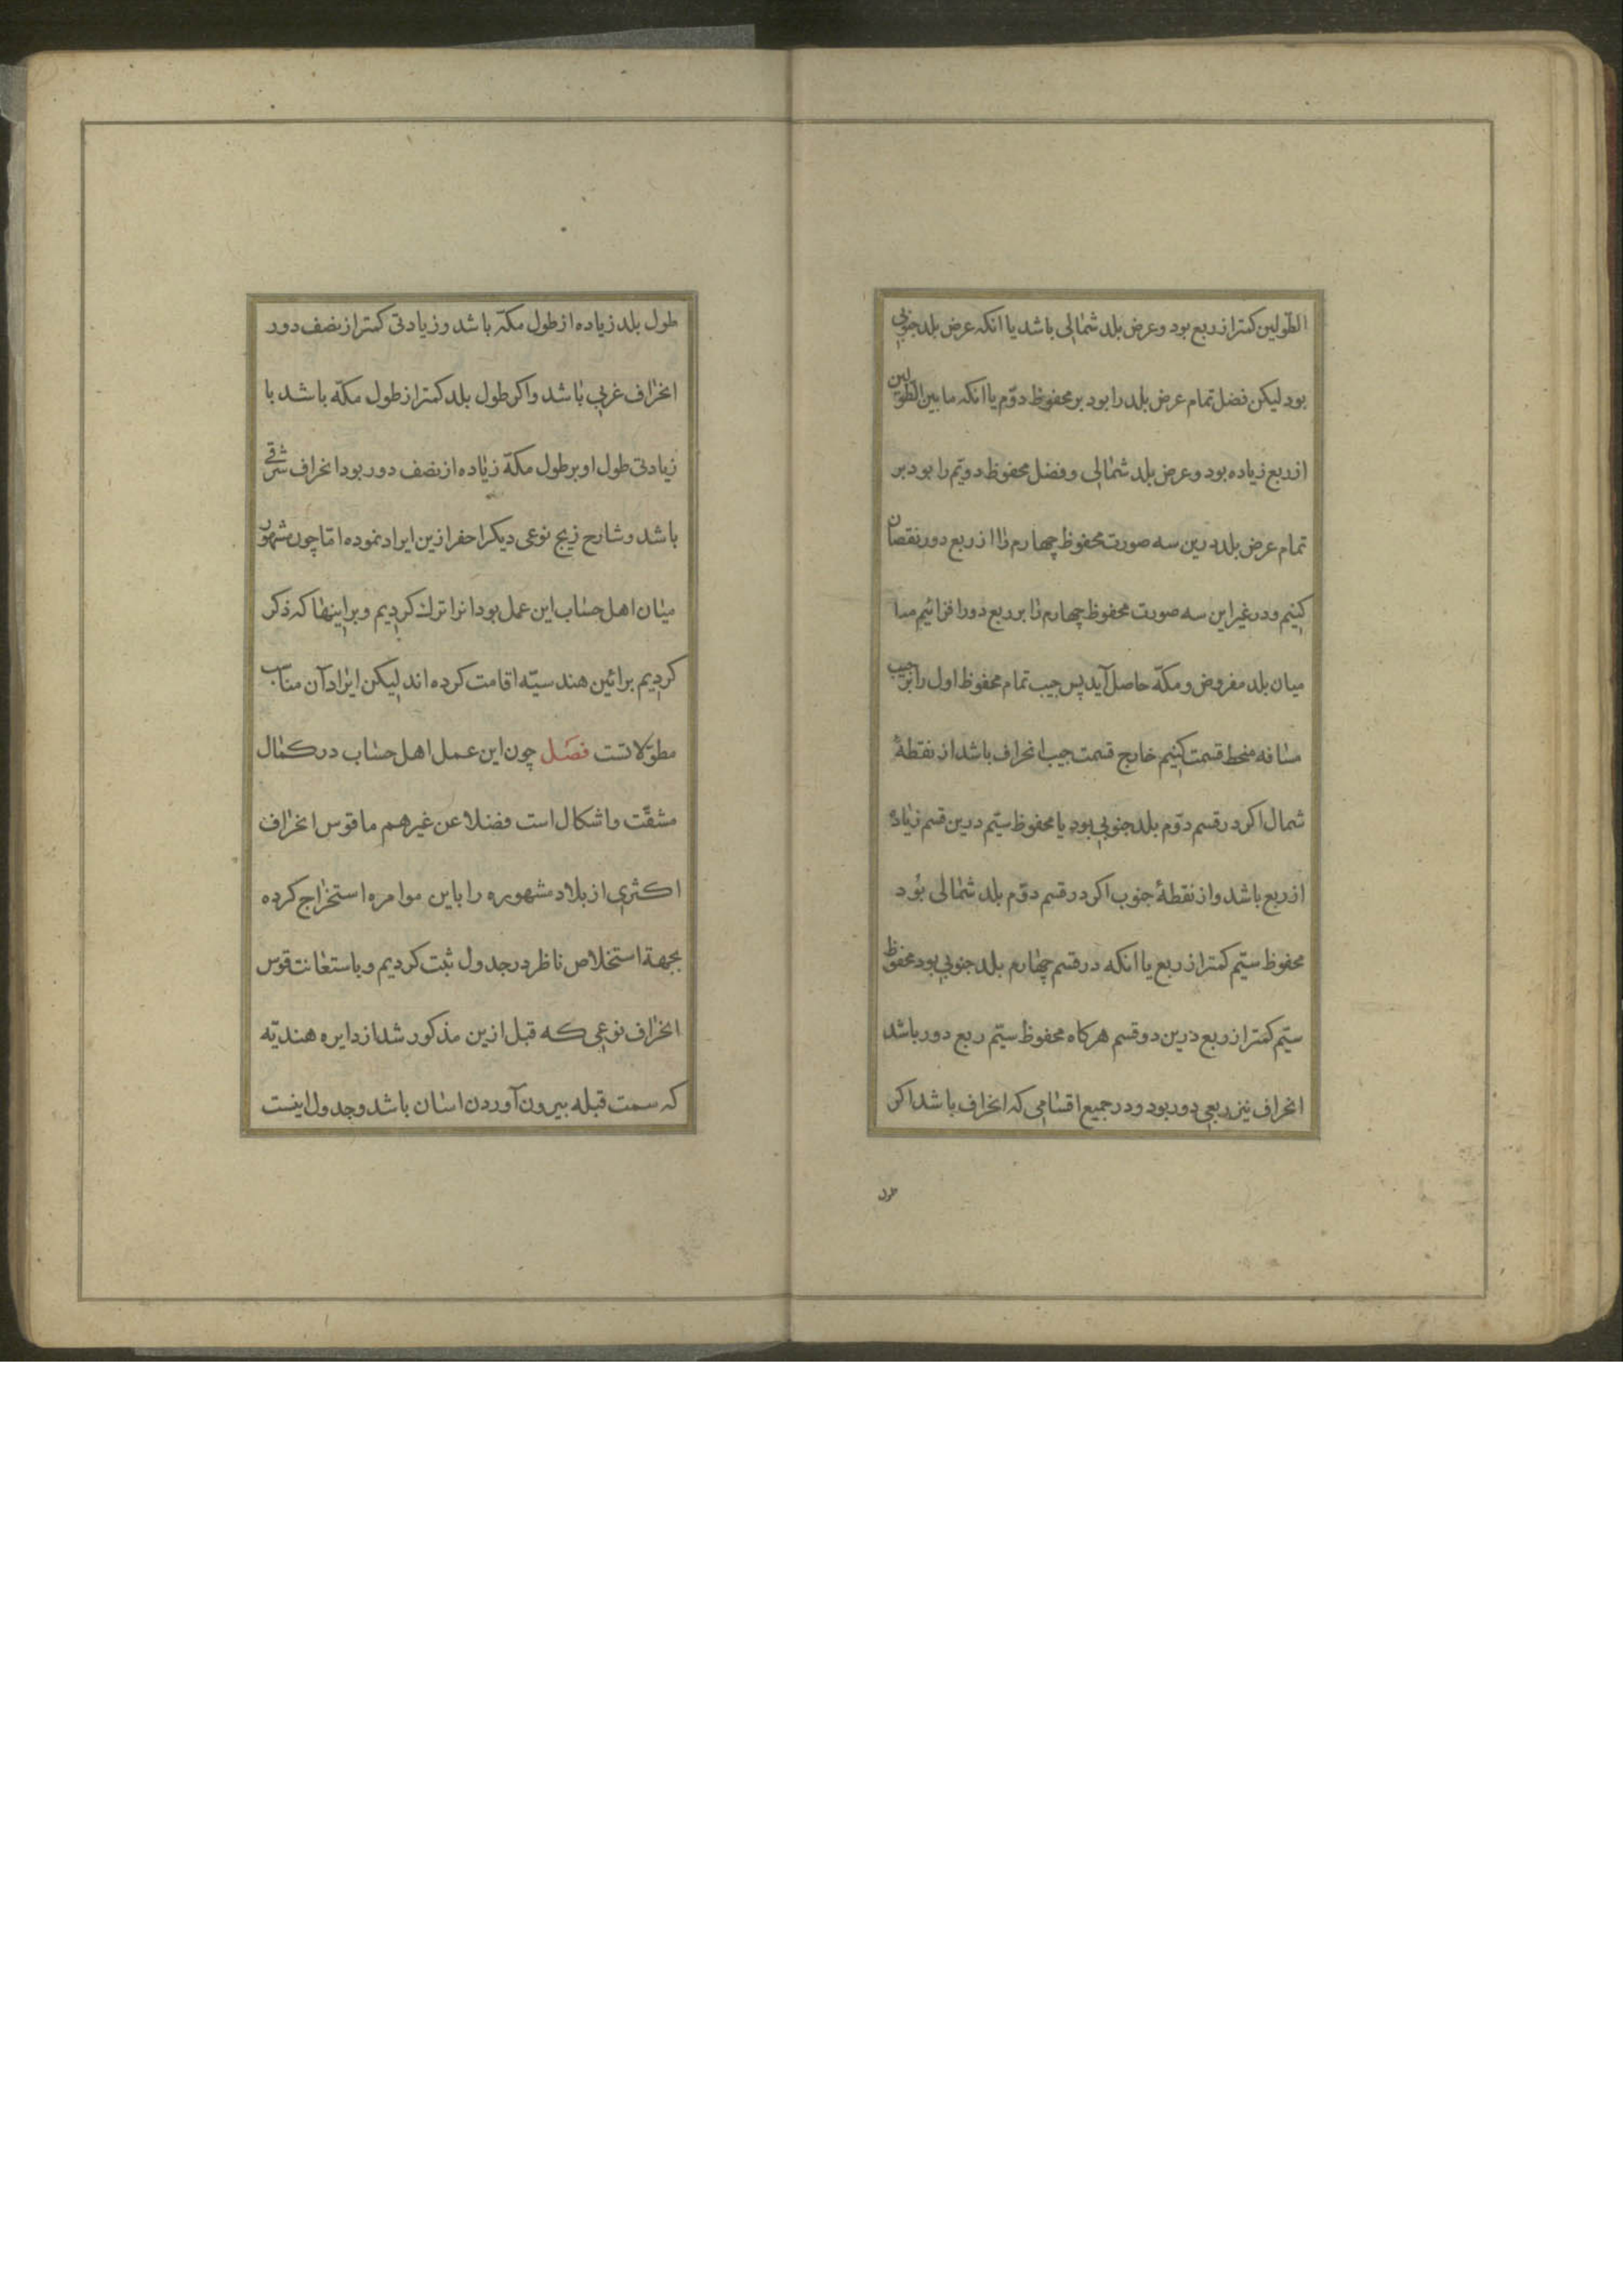 الطّولین کمتر از ربع بود و عرض بلد شمالی باشد یا انکه عرض بلد جنوبی
بود لیکن فضل تمام عرض بلد را بود بر محفوظ دوّم یا انکه ما بین الطّولین
از ربع زیاده بود و عرض بلد شمالی و فضل محفوظ دویّم را بود بر
تمام عرض بلد درین سه صورت محفوظ چهارم را از ربع دور نقصان
کنیم و در غیر این سه صورت محفوظ چهارم را بر ربع دور افزائیم مسا
میان بلد مفروض و مکّه حاصل آید پس جیب تمام محفوظ اول را بر جیب
مسافه منحط قسمت کنیم خارج قسمت جیب انحراف باشد از نقطهٔ
شمال اکر در قسم دوّم بلد جنوبی بود یا محفوظ سیّم درین قسم زیاده
از ربع باشد و از نقطهٔ جنوب اکر در قسم دوّم بلد شمالی بُود
محفوظ سیّم کمتر از ربع یا انکه در قسم چهارم بلد جنوبی بود محفوظ
سیّم کمتر از ربع درین دو قسم هرکاه محفوظ سیّم ربع دور باشد
انحراف نیز ربعی دور بود و در جمیع اقسامی که انحراف باشد اکر
طول
طول بلد زیاده از طول مکّه باشد و زیادتی کمتر از نصف دور
انحراف غربی باشد و اکر طول بلد کمتر از طول مکّه باشد با
زیادتی طول او بر طول مکّه زیاده از نصف دور بود انحراف شرقی
باشد و شارح زیج نوعی دیکر احفر ازین ایراد نموده امّا چون مشهور
میان اهل حساب این عمل بود انرا ترک کردیم و بر اینها که ذکر
کردیم برائین هندسیّه اقامت کرده اند لیکن ایراد آن مناسب
مطوّلاتست فصَل چون این عمل اهل حساب در کمال
مشقّت و اشکال است فضلا عن غیرهم ما قوس انحراف
اکثری از بلاد مشهوره را باین موامره استخراج کرده
بجهة استخلاص ناظر در جدول ثبت کردیم و باستعانت قوس
انحراف نوعی که قبل ازین مذکور شد از دایره هندیّه
که سمت قبله بیرون آوردن اسان باشد و جدول اینست